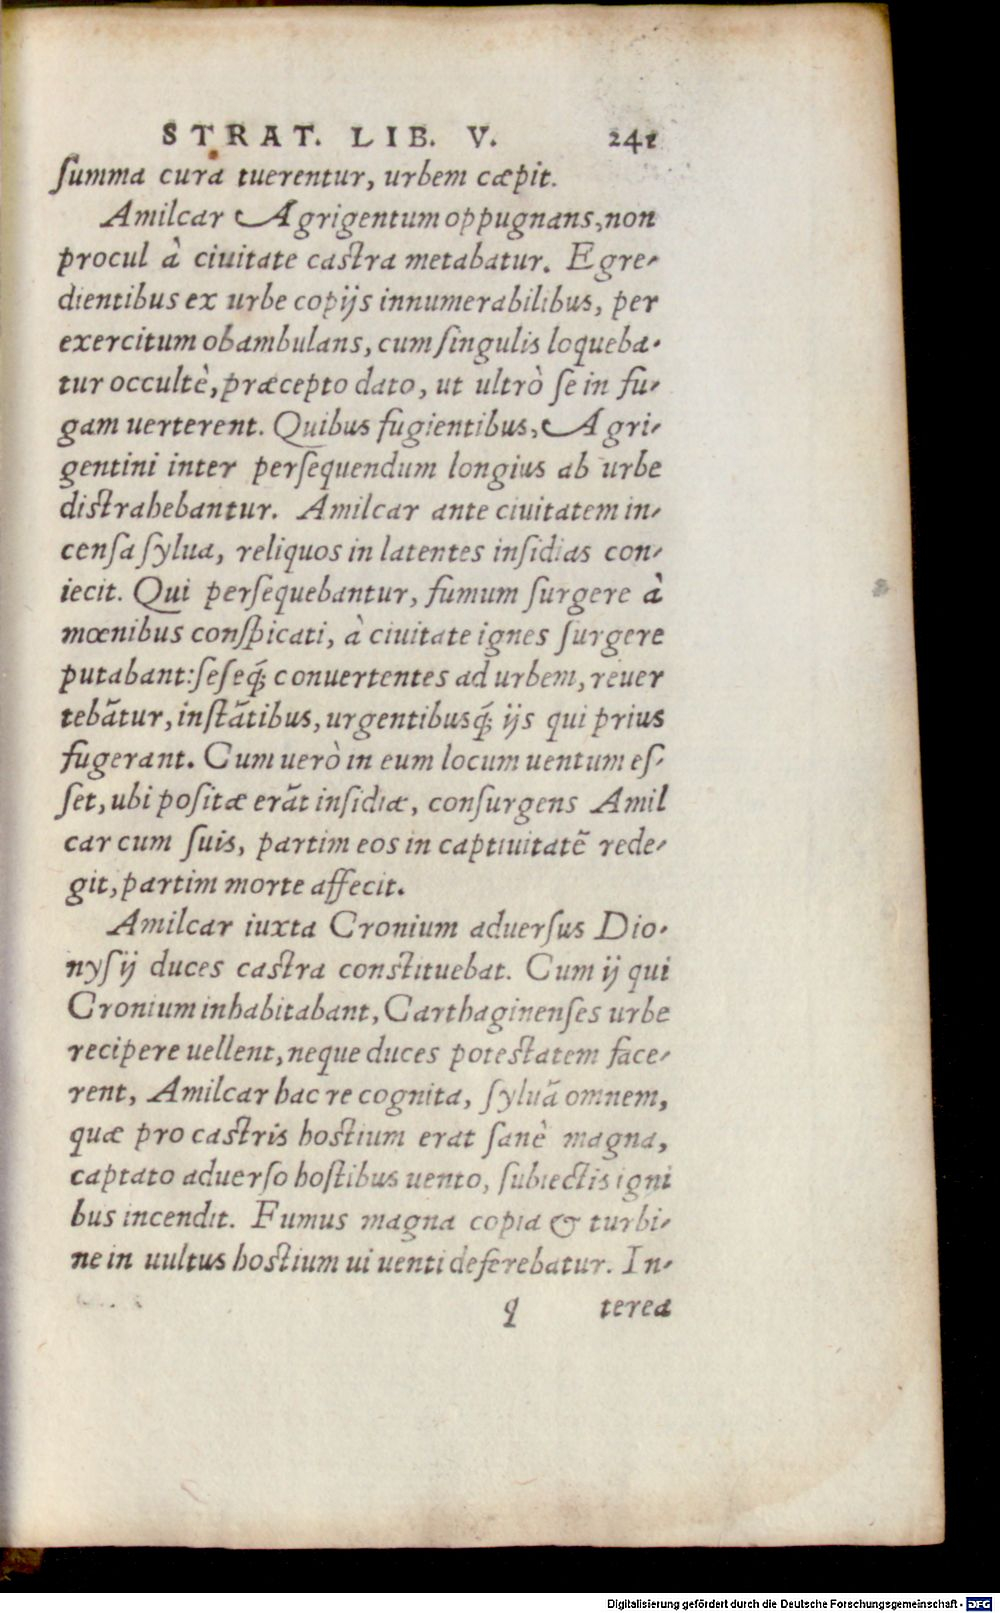 STRAT. LIB. V. 241
ſumma cura tuerentur, urbem cæpit.
Amilcar Agrigentum oppugnans, non
procul à ciuitate caſtra metabatur. Egre-
dientibus ex urbe copijs innumerabilibus, per
exercitum obambulans, cum ſingulis loqueba-
tur occultè, præcepto dato, ut ultrò ſe in fu-
gam uerterent. Quibus fugientibus, Agri-
gentini inter perſequendum longius ab urbe
diſtrahebantur. Amilcar ante ciuitatem in-
cenſa ſylua, reliquos in latentes inſidias con-
iecit. Qui perſequebantur, fumum ſurgere à
mœnibus conſpicati, à ciuitate ignes ſurgere
putabant: ſeſeq́; conuertentes ad urbem, reuer
tebãtur, inſtãtibus, urgentibusq́; ijs qui prius
fugerant. Cum uerò in eum locum uentum eſ-
ſet, ubi poſitæ erãt inſidiæ, conſurgens Amil
car cum ſuis, partim eos in captiuitatẽ rede-
git, partim morte affecit.
Amilcar iuxta Cronium aduerſus Dio-
nyſij duces caſtra conſtituebat. Cum ij qui
Cronium inhabitabant, Carthaginenſes urbe
recipere uellent, neque duces poteſtatem face-
rent, Amilcar hac re cognita, ſyluã omnem,
quæ pro caſtris hoſtium erat ſanè magna,
captato aduerſo hoſtibus uento, ſubiectis igni
bus incendit. Fumus magna copia & turbi-
ne in uultus hoſtium ui uenti deferebatur. In-
q terea
Digitalisierung gefördert durch die Deutsche Forschungsgemeinschaft - DFG